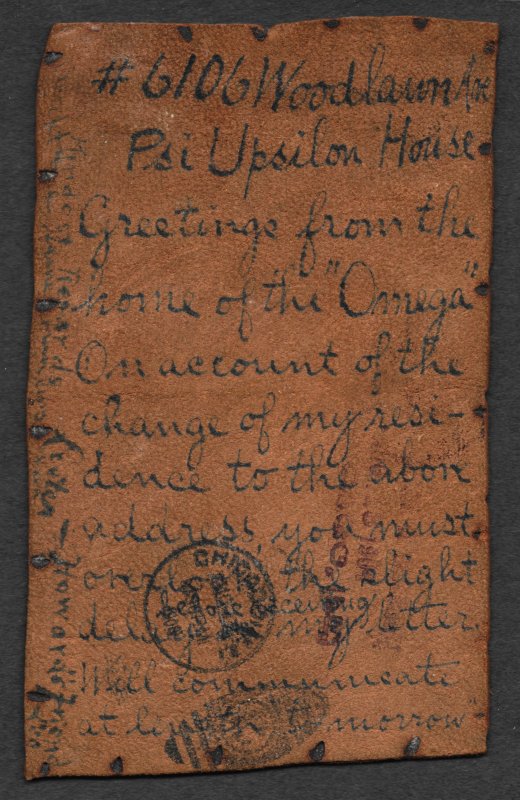 # 6106 Woodlawn Ave
Psi Upsilon House.
Greetings from the
home of the "Omega"
On account of the
change of my resi-
dence to the above
address, you must
overlook the slight
before receiving
delay in my letter.
Will communicate
at length tomorrow-
CHICAGO
Kindest Regards